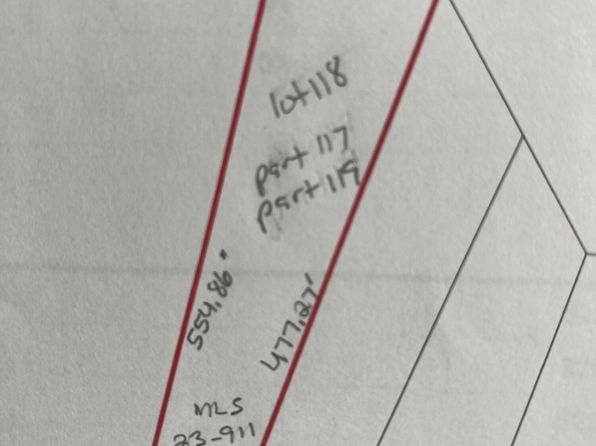 lot 118
part 117
part 119
554.86'
477.27'
MLS
23-911